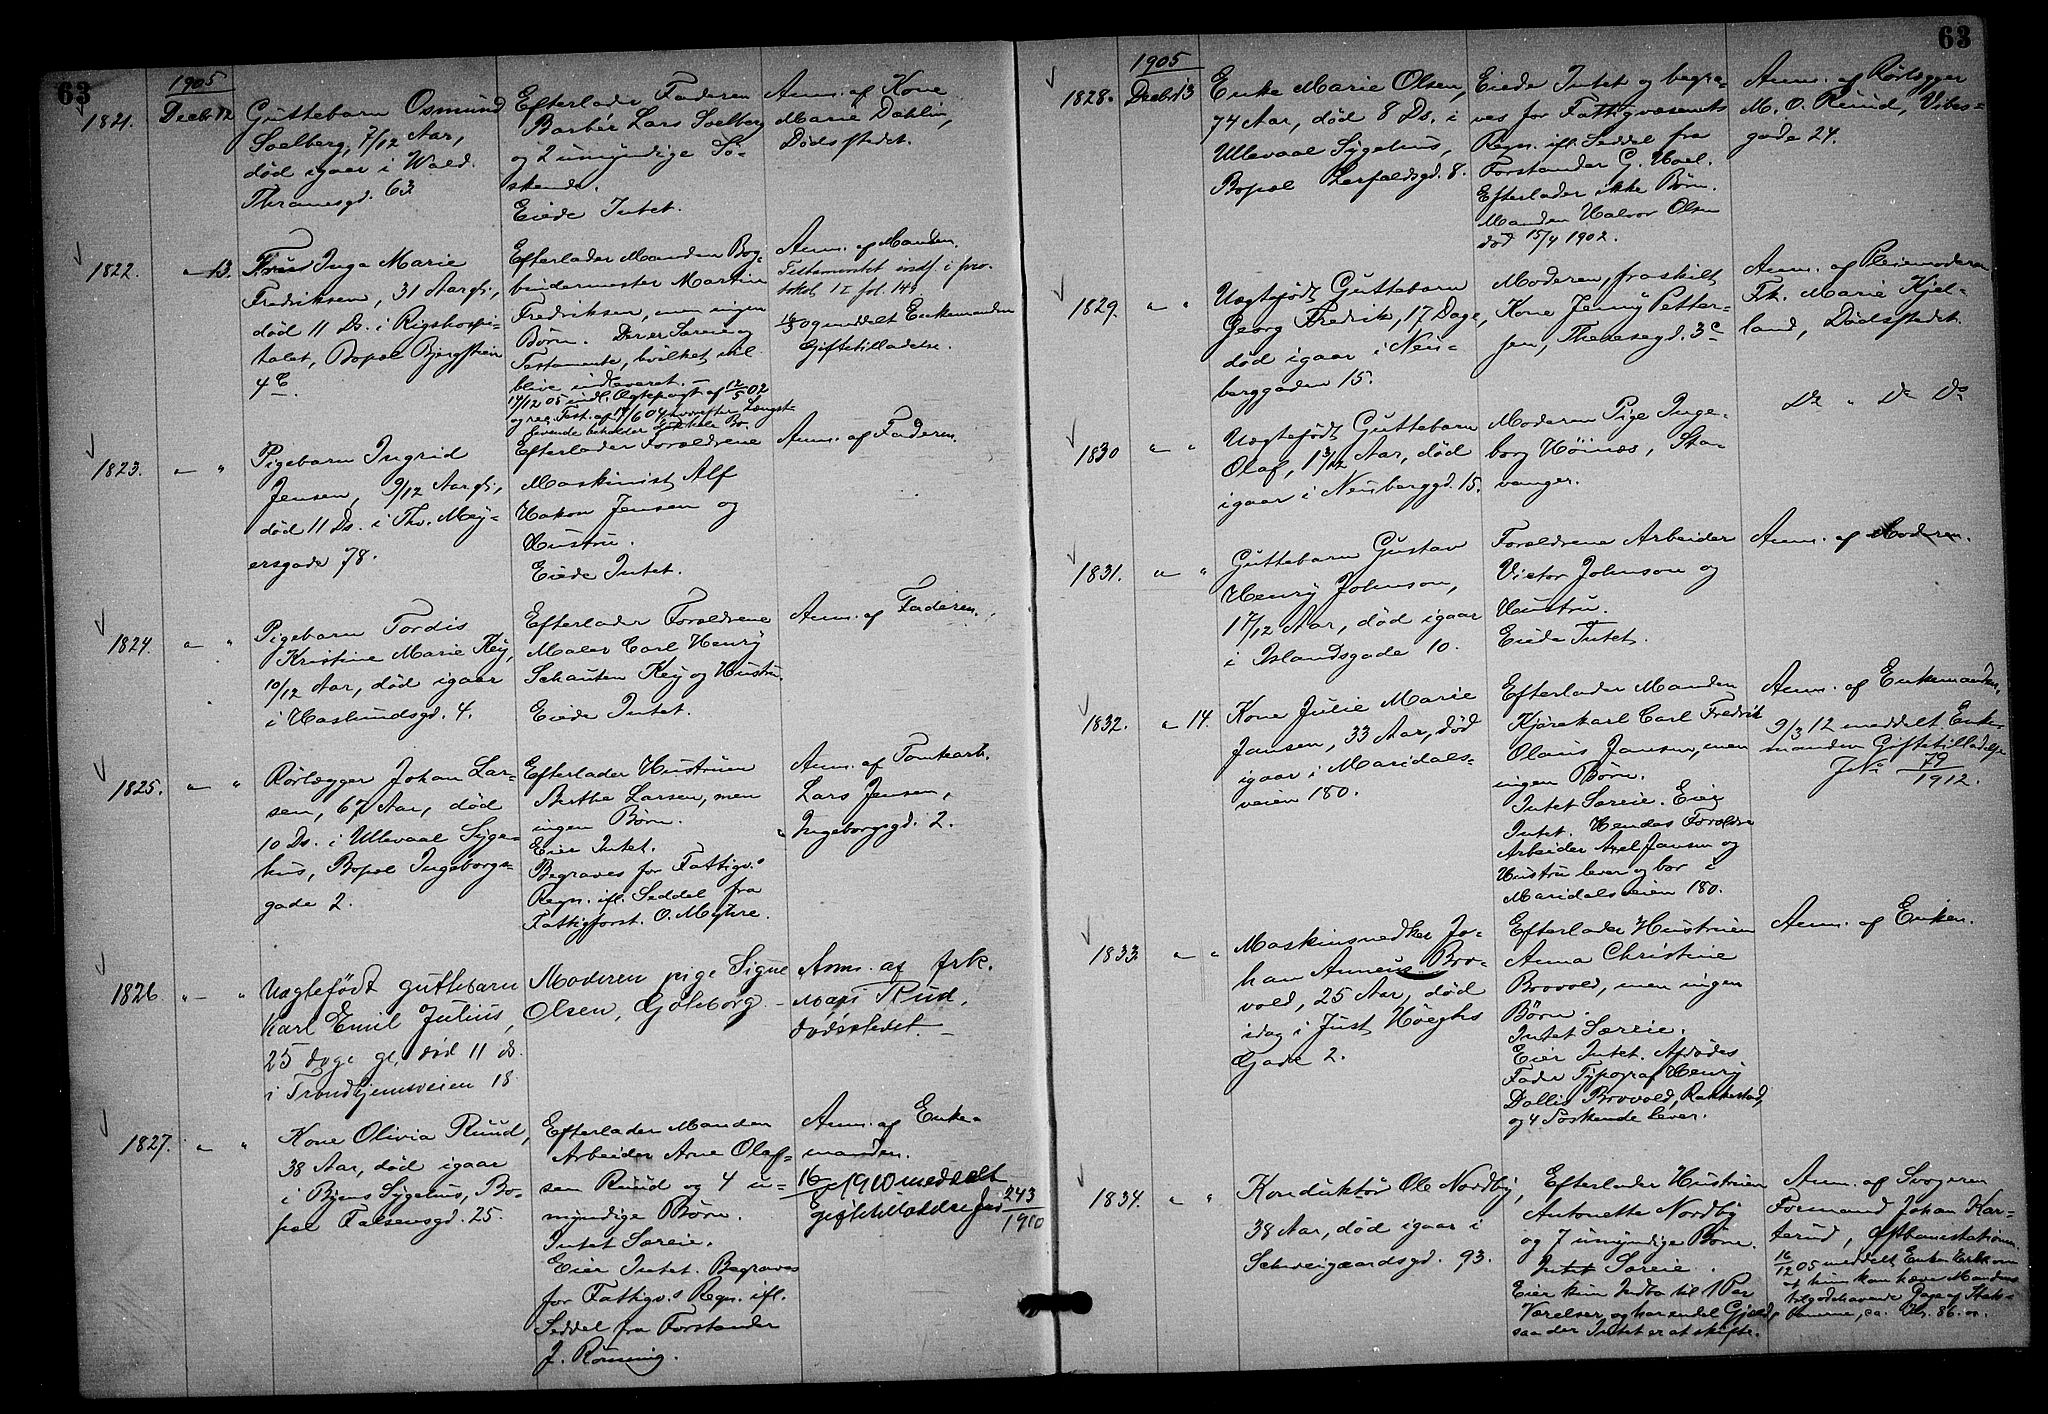 63
1905
1821. Decbr 12
Guttebarn Osmund
Soelberg, 7/12 Aar,
død igaar i Wald.
Thranesgd. 63
Efterlader Faderen
Barbér Lars Soelberg
og 2 umyndige Sø-
skende.
Eiede Intet.
Anm. af Kone
Marie Dahlin,
Dødsstedet.
1822. " 13.
Inga Marie
Fredriksen, 31 Aar gl.,
død 11 Ds. i Rigshospi-
talet, Bopæl Bjergstien
4 C.
Efterlader Manden Bog-
bindermester Martin
Fredriksen, men ingen
Børn. Der er Særeie og
Testamente, hvilket vil
blive indleveret. -
14/12 05 indl. Ægtepagt af 12/5 02
og rec. Test. af 14/6 04 hvorefter Længst-
levende beholder Bo.
Anm. af Manden.
Testamentet indf. i pro-
tokol I fol. 149
09 meddelt Enkemanden
Giftetilladelse.
1823. " "
Pigebarn Ingrid
Jensen, 9/12 Aar gl.,
død 11 Ds. i Thv. Mey-
ersgade 78.
Efterlader Forældrene
Maskinist Alf
Hakon Jensen og
Hustru.
Eiede Intet.
Anm. af Faderen.
1824. " "
Pigebarn Tordis
Kristine Marie Key,
10/12 Aar, død igaar
i Haslundsgd. 4.
Efterlader Forældrene
Maler Carl Henry
Schauten Key og Hustru.
Eiede Intet.
Anm. af Faderen.
1825. " "
Rørlægger Johan Lar-
sen, 67 Aar, død
10 Ds. i Ullevaal Syge-
hus, Bopæl Ingeborgs-
gade 2.
Efterlader Hustruen
Berthe Larsen, men
ingen Børn.
Eier Intet.
Begraves for Fattigv.s
Regn. ifl. Seddel fra
Fattigforst. O. Myhre.
Anm. af Tomtearb.
Lars Jensen,
Ingeborgsgd. 2.
1826 " "
Uægtefödt guttebarn
Karl Emil Julius,
25 dage gl, död 11 ds.
i Trondhjemsveien 18
Moderen pige Signe
Olsen, Göteborg. -
Anm. af frk.
Rud,
dödsstedet. -
1827. " "
Kone Olivia Ruud,
38 Aar, død igaar
i Byens Sygehus, Bo-
pæl Falsensgd. 25.
Efterlader Manden
Arbeider Arne Olaf-
sen Ruud og 4 u-
myndige Børn.
Intet Særeie.
Eier Intet. Begraves
for Fattigv.s Regn. ifl.
Seddel fra Forstander
J. Rønning.
Anm. af Enke-
manden.
1910 meddelt
giftetilladelse Jno 243/1910
63
1905
1828. Decbr 13
Enke Marie Olsen,
74 Aar, død 8 Ds. i
Ullevaal Sygehus,
Bopæl Lerfaldsgd. 8.
Eiede Intet og begra-
ves for Fattigvæsenets
Regn. ifl. Seddel fra
Forstander G. Hoel.
Efterlader ikke Børn.
Manden Halvor Olsen
død 15/4 1902.
Anm. af Rørlægger
M. O. Ruud, Vibes-
gade 24.
1829. " "
Uægtefødt Guttebarn
Georg Fredrik, 17 Dage,
død igaar i Neu-
berggaden 15.
Moderen, fraskilt
Kone Jenny Petter-
sen, Theresegd. 3 c
Anm. af Pleiemoderen
Frk. Marie Kjel-
land, Dødsstedet.
1830 " "
Uægtefødt Guttebarn
Olaf, 1 3/12 Aar, død
igaar i Neuberggd. 15.
Moderen Pige Inge-
borg Høinæs, Sta-
vanger.
Do " Do Do
1831. " "
Guttebarn Gustav
Henry Johnson,
1 7/12 Aar, død igaar
i Islandsgade 10.
Forældrene Arbeider
Victor Johnson og
Hustru.
Eiede Intet.
Anm. af Moderen.
1832. " 14.
Kone Julie Marie
Jansen, 33 Aar, død
igaar i Maridals-
veien 180.
Efterlader Manden
Kjørekarl Carl Fredrik
Olaus Jansen, men
ingen Børn.
Intet Særeie. Eier
Intet. Hendes Forældre
Arbeider Axel Jansen og
Hustru lever og bor i
Maridalsveien 180.
Anm. af Enkemanden.
9/3 12 meddelt Enke-
manden Giftetilladelse
J No 79/1912.
1833 " "
Maskinsnedker Jo-
han Anneus Bro-
vold, 25 Aar, død
idag i Just Høeghs
Gade 2.
Efterlader Hustruen
Anna Christine
Brovold, men ingen
Børn.
Intet Særeie.
Eier Intet. Afdødes
Fader Typograf Henry
Dollis Brovold, Rakkestad,
og 4 Søskende lever.
Anm. af Enken.
1834. " "
Konduktør Ole Nordby,
38 Aar, død igaar i
Schweigaardsgd. 93.
Efterlader Hustruen
Antonette Nordby
og 7 umyndige Børn.
Intet Særeie.
Eier kun Indbo til 1 Par
Værelser, og har endel Gjæld,
saa der Intet er at skifte.
Anm. af Svogeren
Formand Johan Kar-
terud, Østbanestationen.
16/12 05 meddelt Enken Erkl. om
at hun kan hæve Mandens
tilgodehavende Gage af Stats-
banerne, ca. Kr. 86.00.